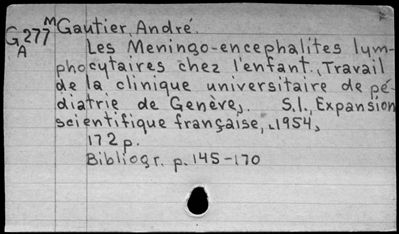 M Gautier, André.
G 277
A
Les Meningo-encephalites lym-
phocytaires chez l'enfant, Travail
de la clinique universitaire de pé-
diatrie de Genève, S.l., Expansion
scientifique française, 1954,
172 p.
Bibliogr. p. 145-170